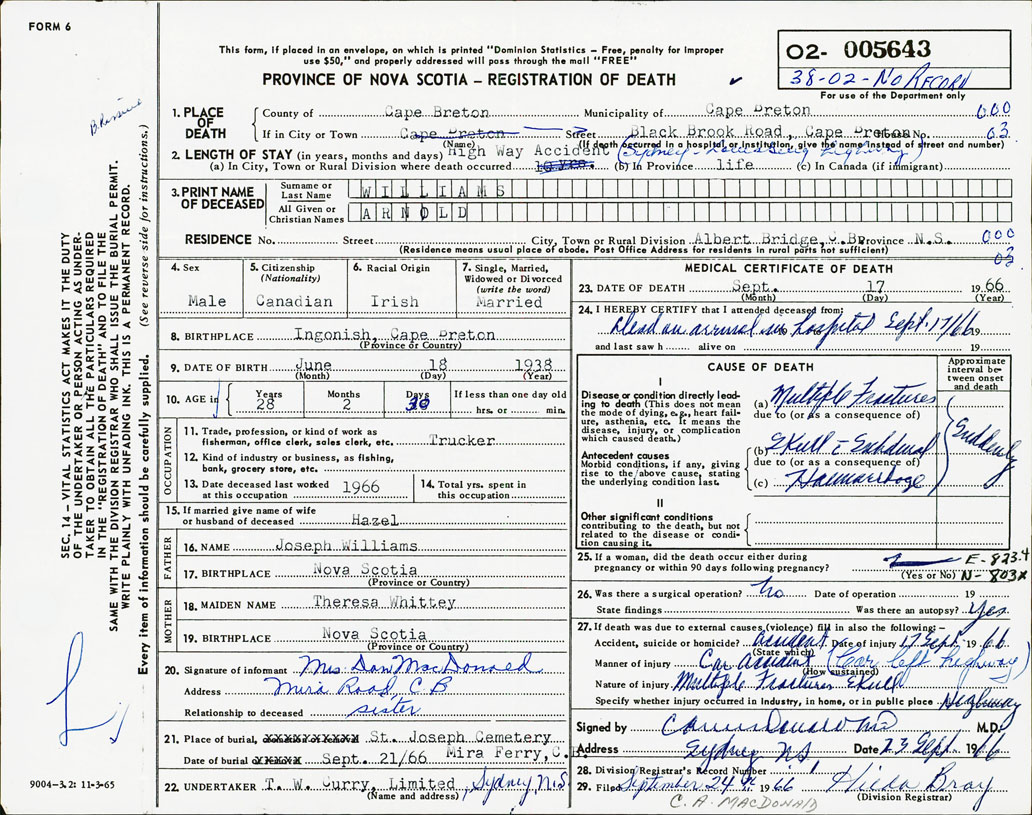 FORM 6
This form, if placed in an envelope, on which is printed "Dominion Statistics – Free, penalty for improper
use $50," and properly addressed will pass through the mail "FREE"
PROVINCE OF NOVA SCOTIA – REGISTRATION OF DEATH
O2- 005643
38-02-No Record
For use of the Department only
1. PLACE OF DEATH
County of Cape Breton Municipality of Cape Breton 000
If in City or Town Cape Breton Street Black Brook Road, Cape Breton House No. 03
(Name) (If death occurred in a hospital or institution, give the name instead of street and number)
2. LENGTH OF STAY (in years, months and days) High Way Accident
(a) In City, Town or Rural Division where death occurred (b) In Province life (c) In Canada (if immigrant)
3. PRINT NAME OF DECEASED
Surname or Last Name WILLIAMS
All Given or Christian Names ARNOLD
RESIDENCE No. Street City, Town or Rural Division Albert Bridge, C.B. Province N.S. 000
(Residence means usual place of abode. Post Office Address for residents in rural parts not sufficient) 03
4. Sex Male
5. Citizenship (Nationality) Canadian
6. Racial Origin Irish
7. Single, Married, Widowed or Divorced (write the word) Married
8. BIRTHPLACE Ingonish, Cape Breton
(Province or Country)
9. DATE OF BIRTH June 18 1938
(Month) (Day) (Year)
10. AGE in Years 28 Months 2 Days 30 If less than one day old hrs. or min.
OCCUPATION
11. Trade, profession, or kind of work as fisherman, office clerk, sales clerk, etc. Trucker
12. Kind of industry or business, as fishing, bank, grocery store, etc.
13. Date deceased last worked at this occupation 1966
14. Total yrs. spent in this occupation
15. If married give name of wife or husband of deceased Hazel
FATHER
16. NAME Joseph Williams
17. BIRTHPLACE Nova Scotia
(Province or Country)
MOTHER
18. MAIDEN NAME Theresa Whittey
19. BIRTHPLACE Nova Scotia
(Province or Country)
20. Signature of informant Mrs Dan MacDonald
Address Mira Road, C B
Relationship to deceased sister
21. Place of burial, St. Joseph Cemetery
Date of burial Sept. 21/66 Mira Ferry, C.B.
22. UNDERTAKER T. W. Curry, Limited, Sydney N.S
(Name and address)
MEDICAL CERTIFICATE OF DEATH
23. DATE OF DEATH Sept. 17 1966
(Month) (Day) (Year)
24. I HEREBY CERTIFY that I attended deceased from:
Dead on arrival in hospital Sept. 17/66 19
and last saw h alive on 19
CAUSE OF DEATH
Approximate interval between onset and death
I
Disease or condition directly leading to death (This does not mean the mode of dying, e.g., heart failure, asthenia, etc. It means the disease, injury, or complication which caused death.)
(a) Multiple Fractures
due to (or as a consequence of)
Antecedent causes
Morbid conditions, if any, giving rise to the above cause, stating the underlying condition last.
(b) Skull c Subdural
due to (or as a consequence of)
(c) Haemorrhage
Suddenly
II
Other significant conditions
contributing to the death, but not related to the disease or condition causing it.
25. If a woman, did the death occur either during pregnancy or within 90 days following pregnancy? E-823.4
(Yes or No) N-803X
26. Was there a surgical operation? no Date of operation 19
State findings Was there an autopsy? Yes
27. If death was due to external causes (violence) fill in also the following:–
Accident, suicide or homicide? accident Date of injury 17 Sept. 1966
(State which)
Manner of injury Car accident (Car left highway)
(How sustained)
Nature of injury Multiple Fractures Skull
Specify whether injury occurred in industry, in home, or in public place Highway
Signed by M.D.
Address Sydney NS Date 23 Sept. 1966
28. Division Registrar's Record Number 1
29. Filed September 24th 1966 Hilda Bray
(Division Registrar)
C. A. MACDONALD
SEC. 14 – VITAL STATISTICS ACT MAKES IT THE DUTY
OF THE UNDERTAKER OR PERSON ACTING AS UNDER-
TAKER TO OBTAIN ALL THE PARTICULARS REQUIRED
IN THE "REGISTRATION OF DEATH" AND TO FILE THE
SAME WITH THE DIVISION REGISTRAR WHO SHALL ISSUE THE BURIAL PERMIT.
WRITE PLAINLY WITH UNFADING INK. THIS IS A PERMANENT RECORD.
Every item of information should be carefully supplied. (See reverse side for instructions.)
9004–3.2: 11-3-65